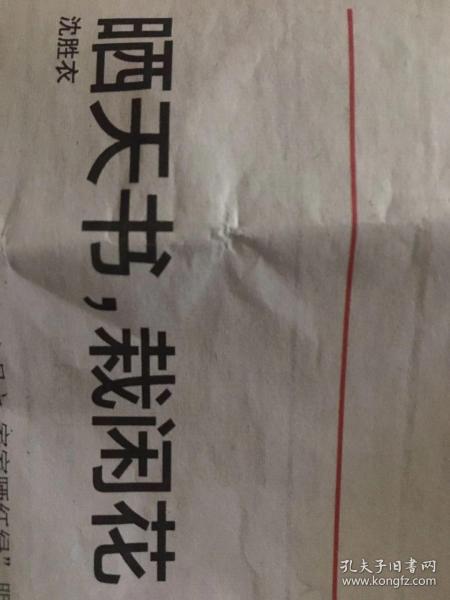 晒天书，栽闲花
沈胜衣
家家晒红绿”
孔夫子旧书网
www.kongfz.com